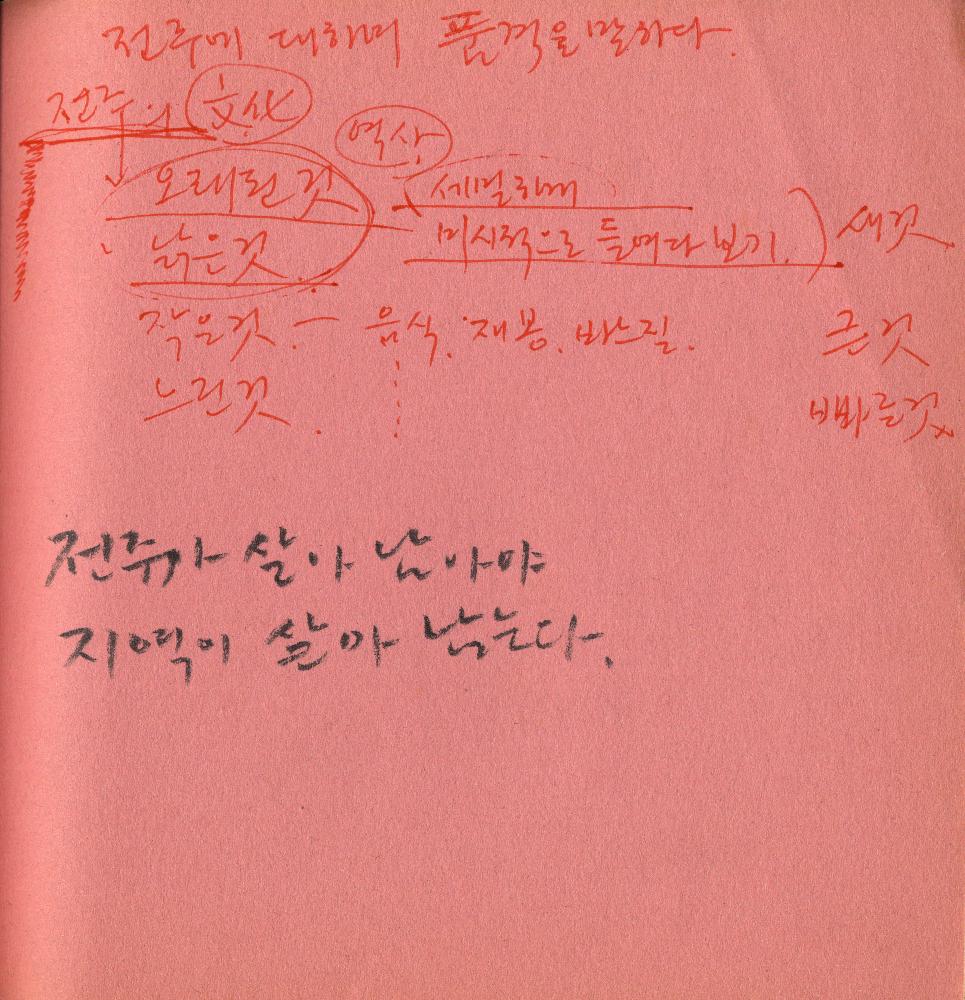 전주에 대하여 품격을 말하다.
전주의 文化
역사
오래된 것 세밀하게 새것
낡은것 미시적으로 들여다 보기.
작은것 - 음식. 재봉. 바느질. 큰것
느린것. 빠른것
전주가 살아 남아야
지역이 살아 남는다.